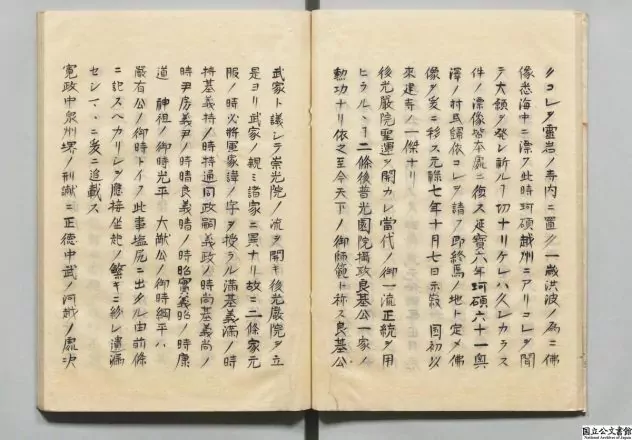 クコレヲ靈岩ノ寺内ニ置ク一歳洪波ノ為ニ佛
像悉海中ニ漂ク此時珂碩越州ニアリコレヲ聞
テ大願ヲ發シ祈ルヿ切ナリケレハ久シカラス
件ノ漂像皆本處ニ復ス延寶六年珂碩六十一奥
澤ノ村民歸依コレヲ請フ即終焉ノ地ト定メ佛
像ヲ爰ニ移ス元禄七年十月七日示寂 國初以
來建寺ノ一傑ナリ
後光嚴院聖運ヲ開カレ當代ノ御一流正統ヲ用
ヒラルヽヿ二條後普光園院攝政良基公一家ノ
勲功ナリ依之至今天下ノ御師範ト称ス良基公
武家ト議シテ崇光院ノ流ヲ閣キ後光嚴院ヲ立
是ヨリ武家ノ親ミ諸家ニ異ナリ故ニ二條家元
服ノ時必將軍家諱ノ字ヲ授ラル滿基義滿ノ時
持基義持ノ時持通同政嗣義政ノ時尚基義尚ノ
時尹房義尹ノ時晴良義晴ノ時昭實義昭ノ時康
道 神祖ノ御時光平 大猷公ノ御時綱平ハ
嚴有公ノ御時トイフ此事塩尻ニ出タル由前條
ニ記スヘカリシヲ應接坐起ノ繁キニ紛レ遺漏
センマヽニ爰ニ追載ス
寛政中泉州堺ノ刑獄ニ正德中武ノ河越ノ處決
国立公文書館
National Archives of Japan